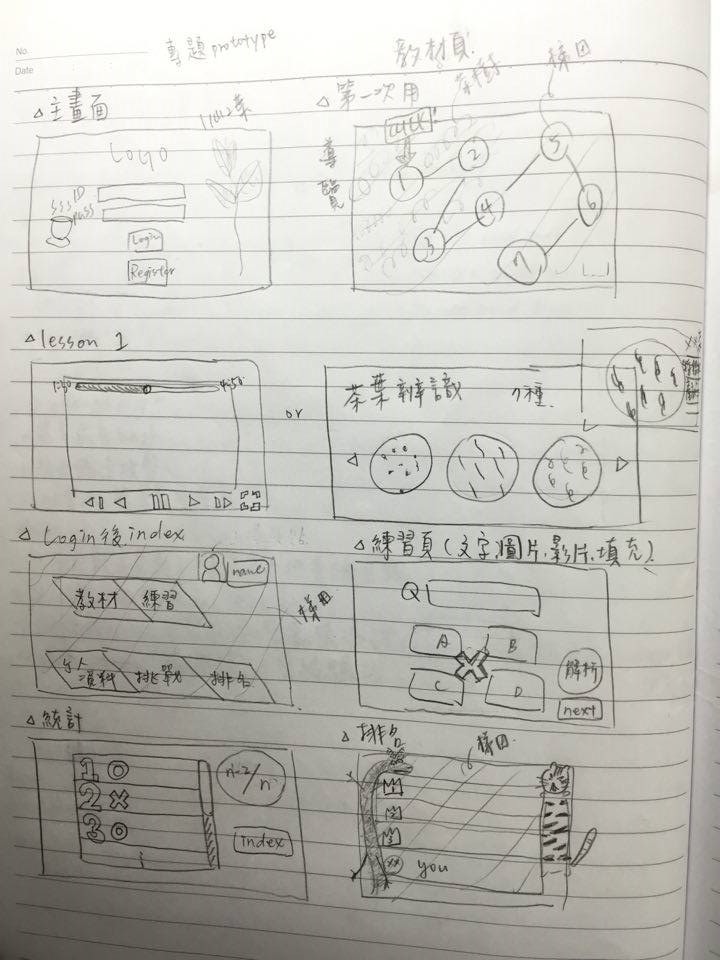 No.
Date
專題 prototype
教材頁
茶樹
梯田
△主畫面
LOGO
ID
pass
Login
Register
△第一次用
導覽
CLICK!
1
2
3
4
5
6
7
△lesson 1
1:30
4:50
or
茶葉辨識
7種
△Login後index
name
教材
練習
個人資料
挑戰
排名
梯田
△練習頁(文字、圖片、影片、填充)
Q
A
B
C
D
解析
next
△統計
1 O
2 X
3 O
n-2/n
index
△排名
梯田
1
2
3
you